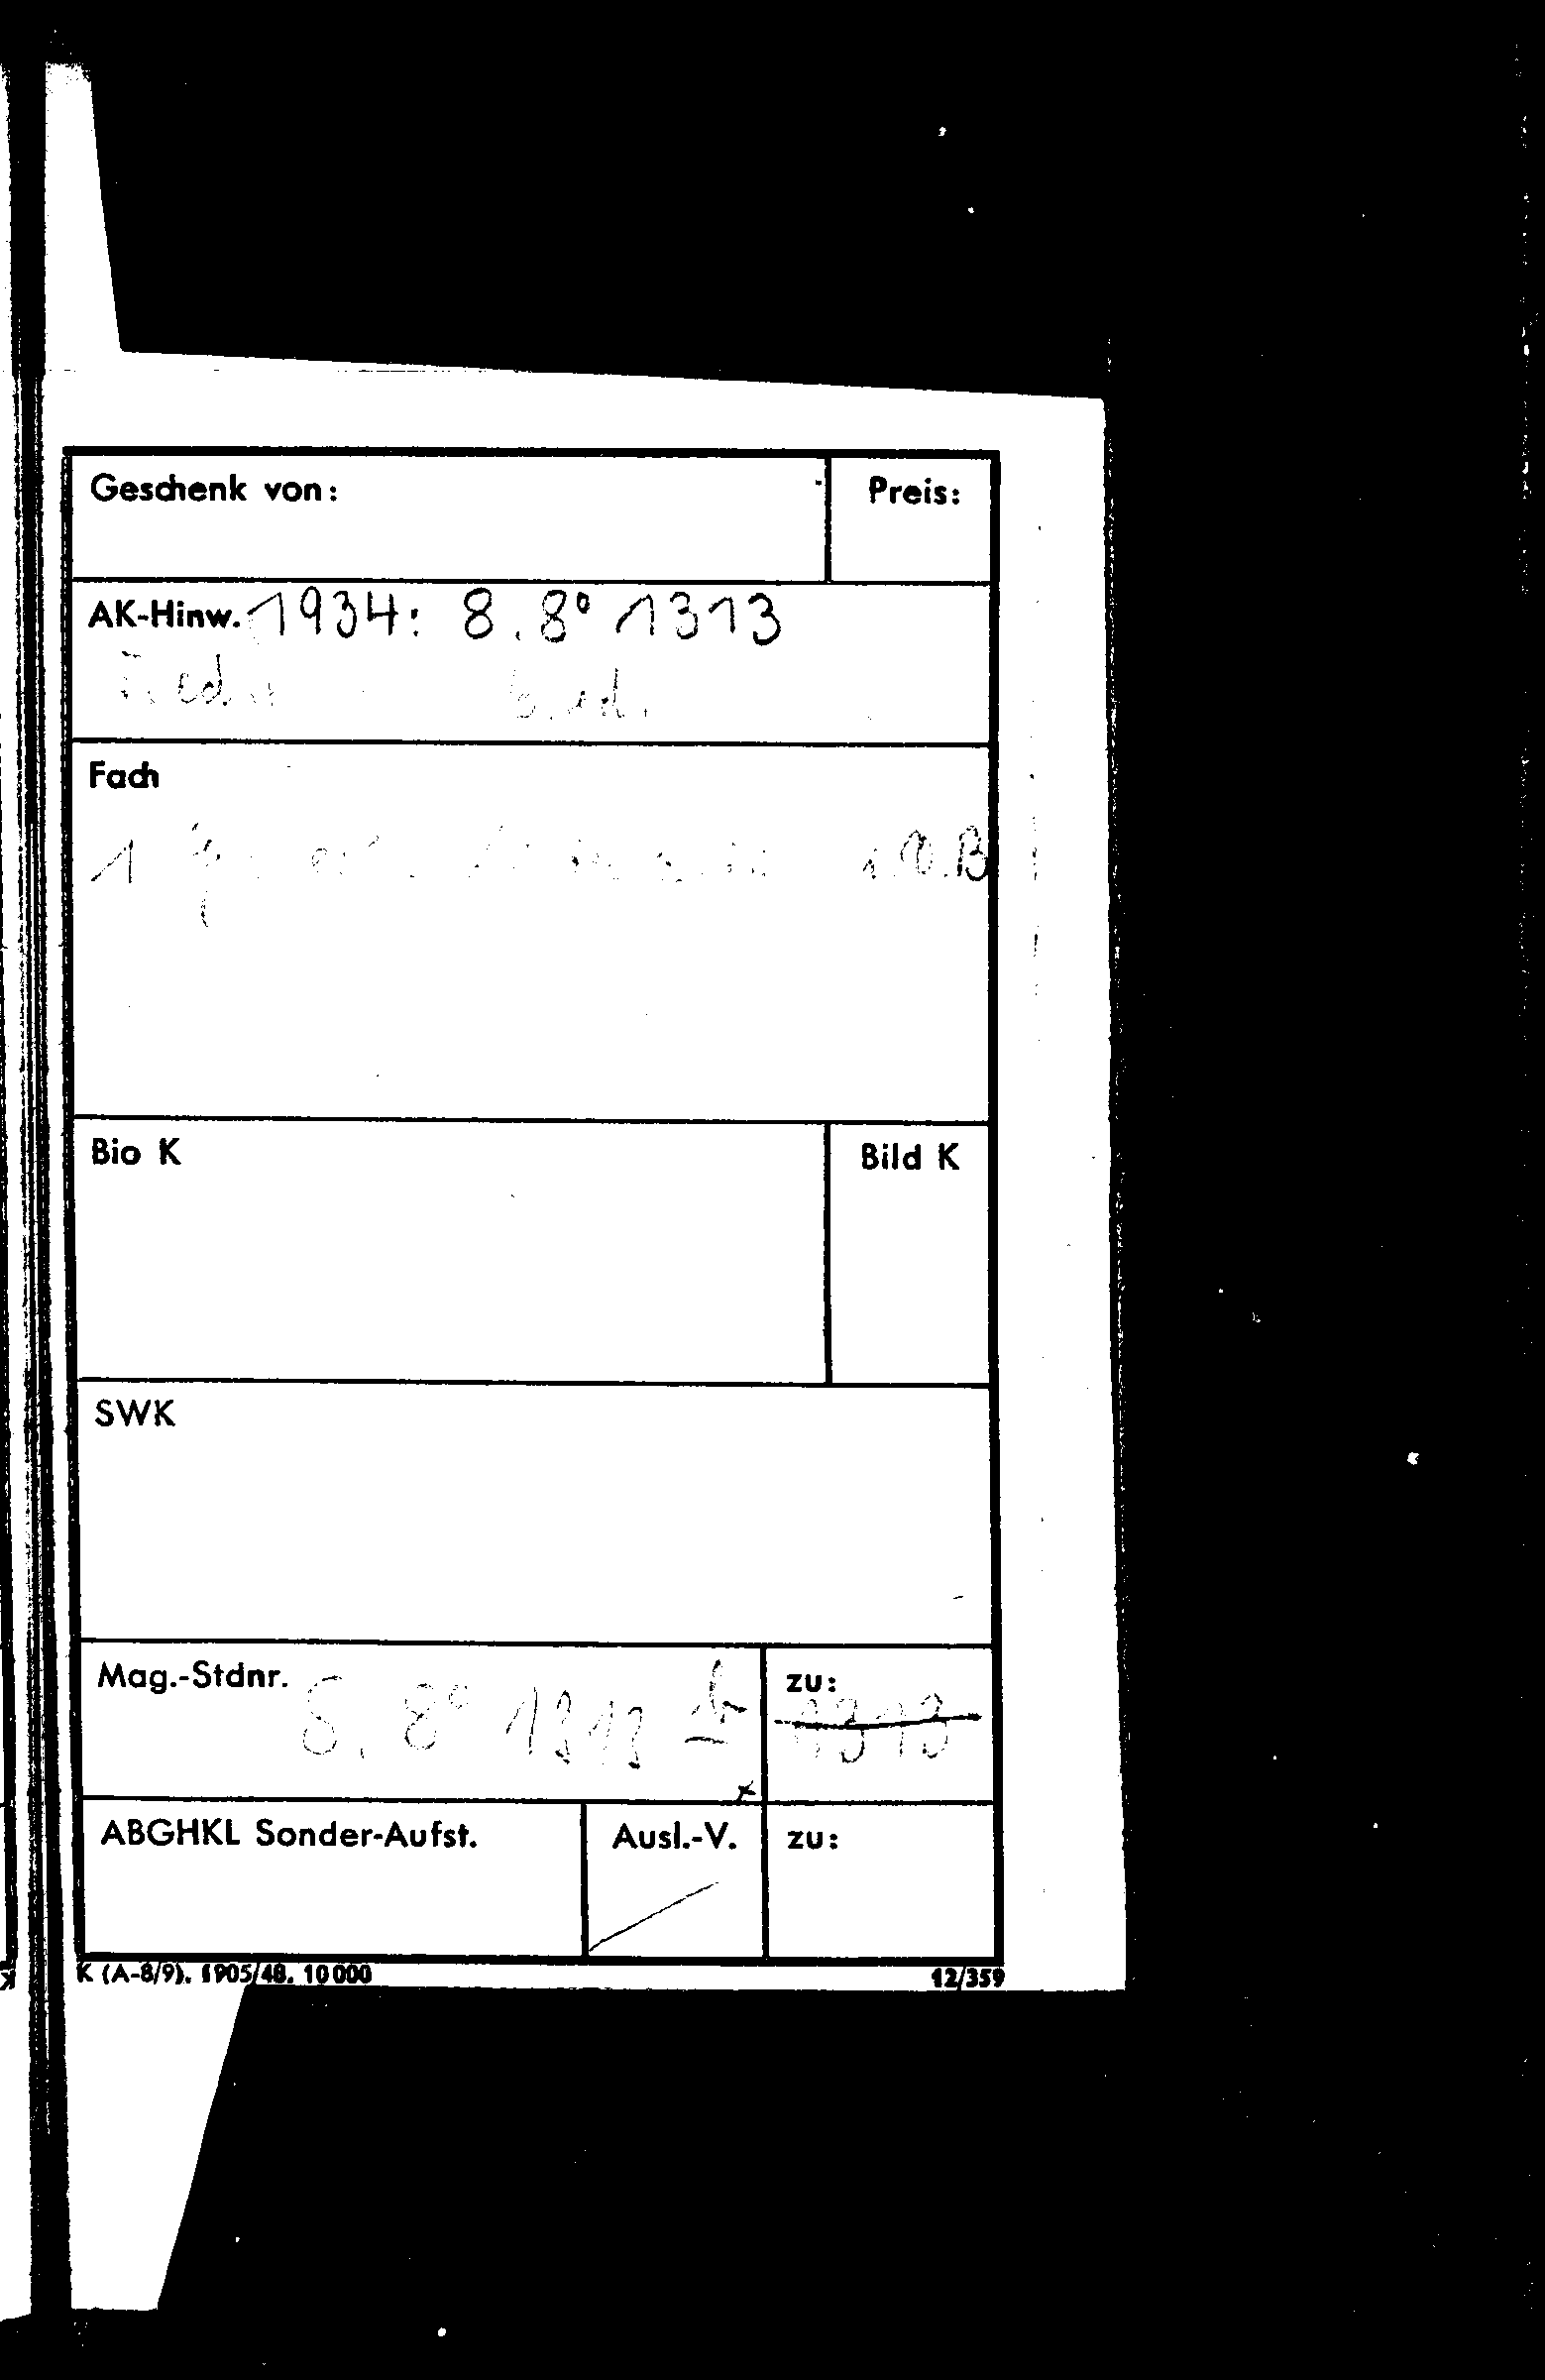 Geschenk von:
Preis:
AK-Hinw. 1934: 8. 8° 1313
Fach
1
Bio K
Bild K
SWK
Mag.-Stdnr. 8. 8° 1313 b
zu: 1313
ABGHKL Sonder-Aufst.
Ausl.-V.
zu:
K (A-8/9). 1905/48. 10000
12/359